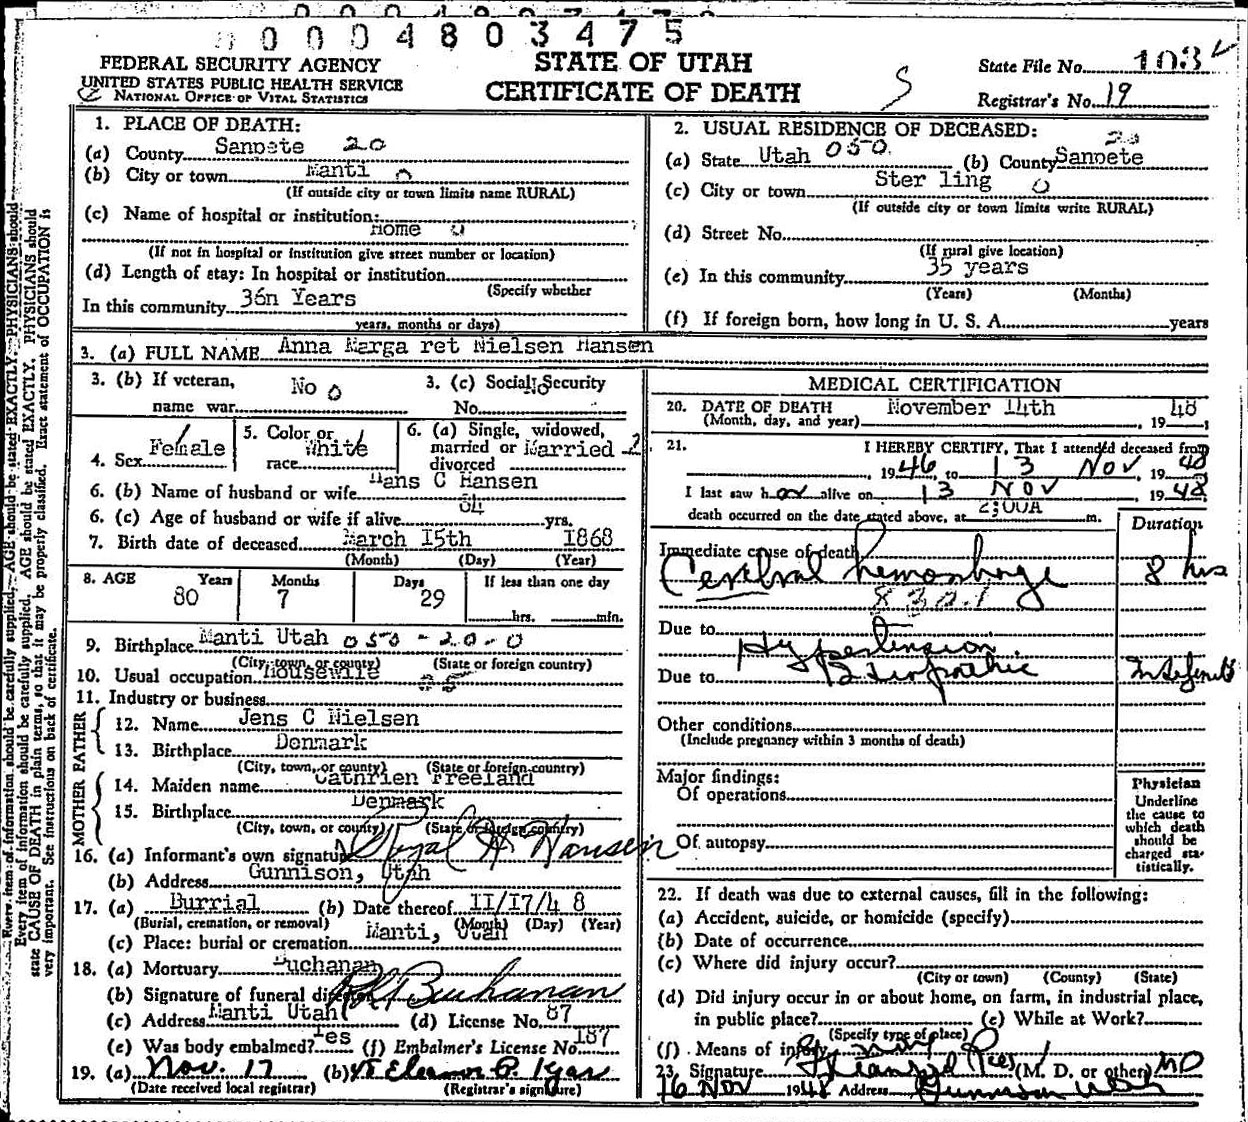 0 0 0 4 8 0 3 4 7 5
FEDERAL SECURITY AGENCY
UNITED STATES PUBLIC HEALTH SERVICE
NATIONAL OFFICE OF VITAL STATISTICS
STATE OF UTAH
CERTIFICATE OF DEATH
S
State File No. 103
Registrar's No. 19
1. PLACE OF DEATH:
(a) County Sanpete 20
(b) City or town Manti 0
(If outside city or town limits name RURAL)
(c) Name of hospital or institution:
Home 0
(If not in hospital or institution give street number or location)
(d) Length of stay: In hospital or institution
(Specify whether
In this community 36n Years
years, months or days)
2. USUAL RESIDENCE OF DECEASED:
(a) State Utah 050 (b) County Sanpete 20
(c) City or town Ster ling 0
(If outside city or town limits write RURAL)
(d) Street No.
(If rural give location)
(e) In this community 35 years
(Years) (Months)
(f) If foreign born, how long in U. S. A. years
3. (a) FULL NAME Anna Marga ret Nielsen Hansen
3. (b) If veteran, name war No 0
3. (c) Social Security No. No
4. Sex Female
5. Color or race White
6. (a) Single, widowed, married or divorced Married 2
6. (b) Name of husband or wife Hans C Hansen
6. (c) Age of husband or wife if alive 84 yrs.
7. Birth date of deceased March I5th 1868
(Month) (Day) (Year)
8. AGE Years Months Days If less than one day
80 7 29 hrs. min.
9. Birthplace Manti Utah 050-20-0
(City, town, or county) (State or foreign country)
10. Usual occupation Housewife
11. Industry or business
FATHER
12. Name Jens C Nielsen
13. Birthplace Denmark
(City, town, or county) (State or foreign country)
MOTHER
14. Maiden name Cathrien Freeland
15. Birthplace Denmark
(City, town, or county) (State or foreign country)
16. (a) Informant's own signature Royal H Hansen
(b) Address Gunnison, Utah
17. (a) Burrial (b) Date thereof II/I7/4 8
(Burial, cremation, or removal) (Month) (Day) (Year)
(c) Place: burial or cremation Manti, Utah
18. (a) Mortuary Buchanan
(b) Signature of funeral director Buchanan
(c) Address Manti Utah (d) License No. 87
(e) Was body embalmed? Yes (f) Embalmer's License No. 187
19. (a) Nov. 17 (b) 48 Eleanor P.
(Date received local registrar) (Registrar's signature)
MEDICAL CERTIFICATION
20. DATE OF DEATH November 14th 1948
(Month, day, and year)
21. I HEREBY CERTIFY, That I attended deceased from
1946 to 13 Nov 1948
I last saw her alive on 13 Nov 1948
death occurred on the date stated above, at 2:00A m.
Duration
Immediate cause of death
Cerebral hemorrhage 8 hrs
Due to Hypertension
Due to Idiopathic Indefinite
Other conditions
(Include pregnancy within 3 months of death)
Major findings:
Of operations
Of autopsy
Physician
Underline
the cause to
which death
should be
charged sta-
tistically.
22. If death was due to external causes, fill in the following:
(a) Accident, suicide, or homicide (specify)
(b) Date of occurrence
(c) Where did injury occur?
(City or town) (County) (State)
(d) Did injury occur in or about home, on farm, in industrial place,
in public place? (e) While at Work?
(Specify type of place)
(f) Means of injury
23. Signature (M. D. or other) MD
16 Nov 1948 Address Gunnison Utah
Every item of information should be carefully supplied. AGE should be stated EXACTLY. PHYSICIANS should
state CAUSE OF DEATH in plain terms, so that it may be properly classified. Exact statement of OCCUPATION is
very important. See instructions on back of certificate.